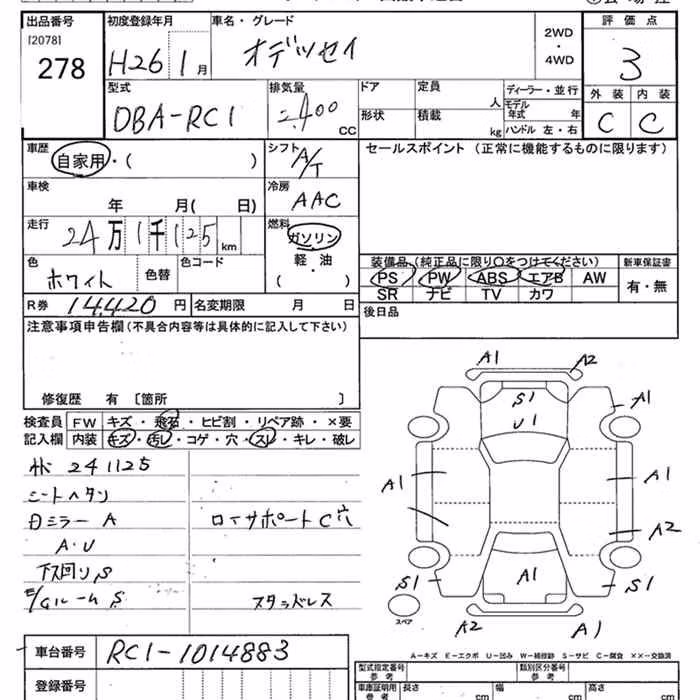 出品番号 初度登録年月 車名・グレード 評価点
[2078] 278 H26 1月 オデッセイ 2WD・4WD 3
型式 排気量 ドア 定員 人 ディーラー・並行 外装 内装
DBA-RC1 2400 CC 形状 積載 kg モデル年式 年 ハンドル 左・右 C C
車歴 シフト セールスポイント (正常に機能するものに限ります)
自家用・( ) A/T
車検 冷房
年 月( 日) AAC
走行 燃料
24万1千125km ガソリン
軽・油
( )
色 色替 色コード
ホワイト
装備品 (純正品に限り○をつけてください) 新車保証書
PS PW ABS エアB AW 有・無
SR ナビ TV カワ
R券 14420円 名変期限 月 日 後日品
注意事項申告欄 (不具合内容等は具体的に記入して下さい)
修復歴 有 〔箇所 〕
検査員 FW キズ・飛石・ヒビ割・リペア跡・×要
記入欄 内装 キズ・汚レ・コゲ・穴・スレ・キレ・破レ
241125
シートヘタリ
ミラー A
A・U
下回りS
E/Gルーム S
ロアサポートC穴
スタッドレス
A1 A2
S1
U1
A1
A1
A1
A2
S1 A1 S1
スペア
A2 A1
A-キズ E-エクボ U-凹み W-補修跡 S-サビ C-腐食 ××-交換済
車台番号 RC1-1014883
登録番号
型式指定番号 参考 類別区分番号 参考
車庫証明用 参考 長さ cm 幅 cm 高さ cm